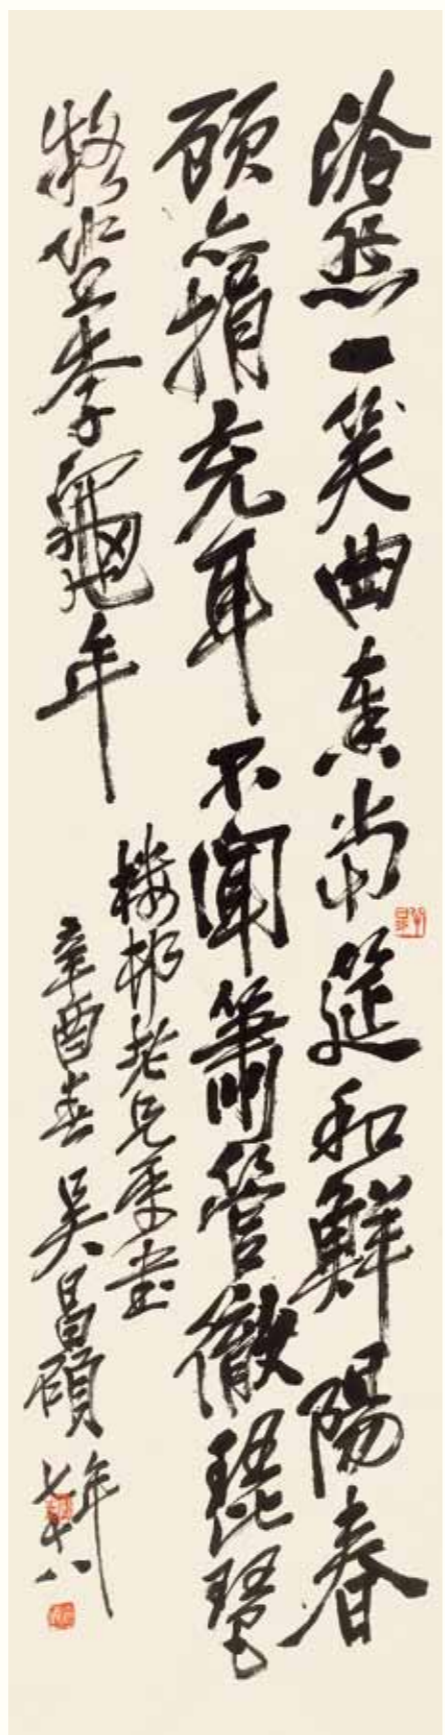 冷然一笑曲奏當筵和鮮陽春
顧亦捐充耳不聞簫管徹琵琶
李龜年
樓邨老兄屬書
辛酉春吳昌碩年
七十八